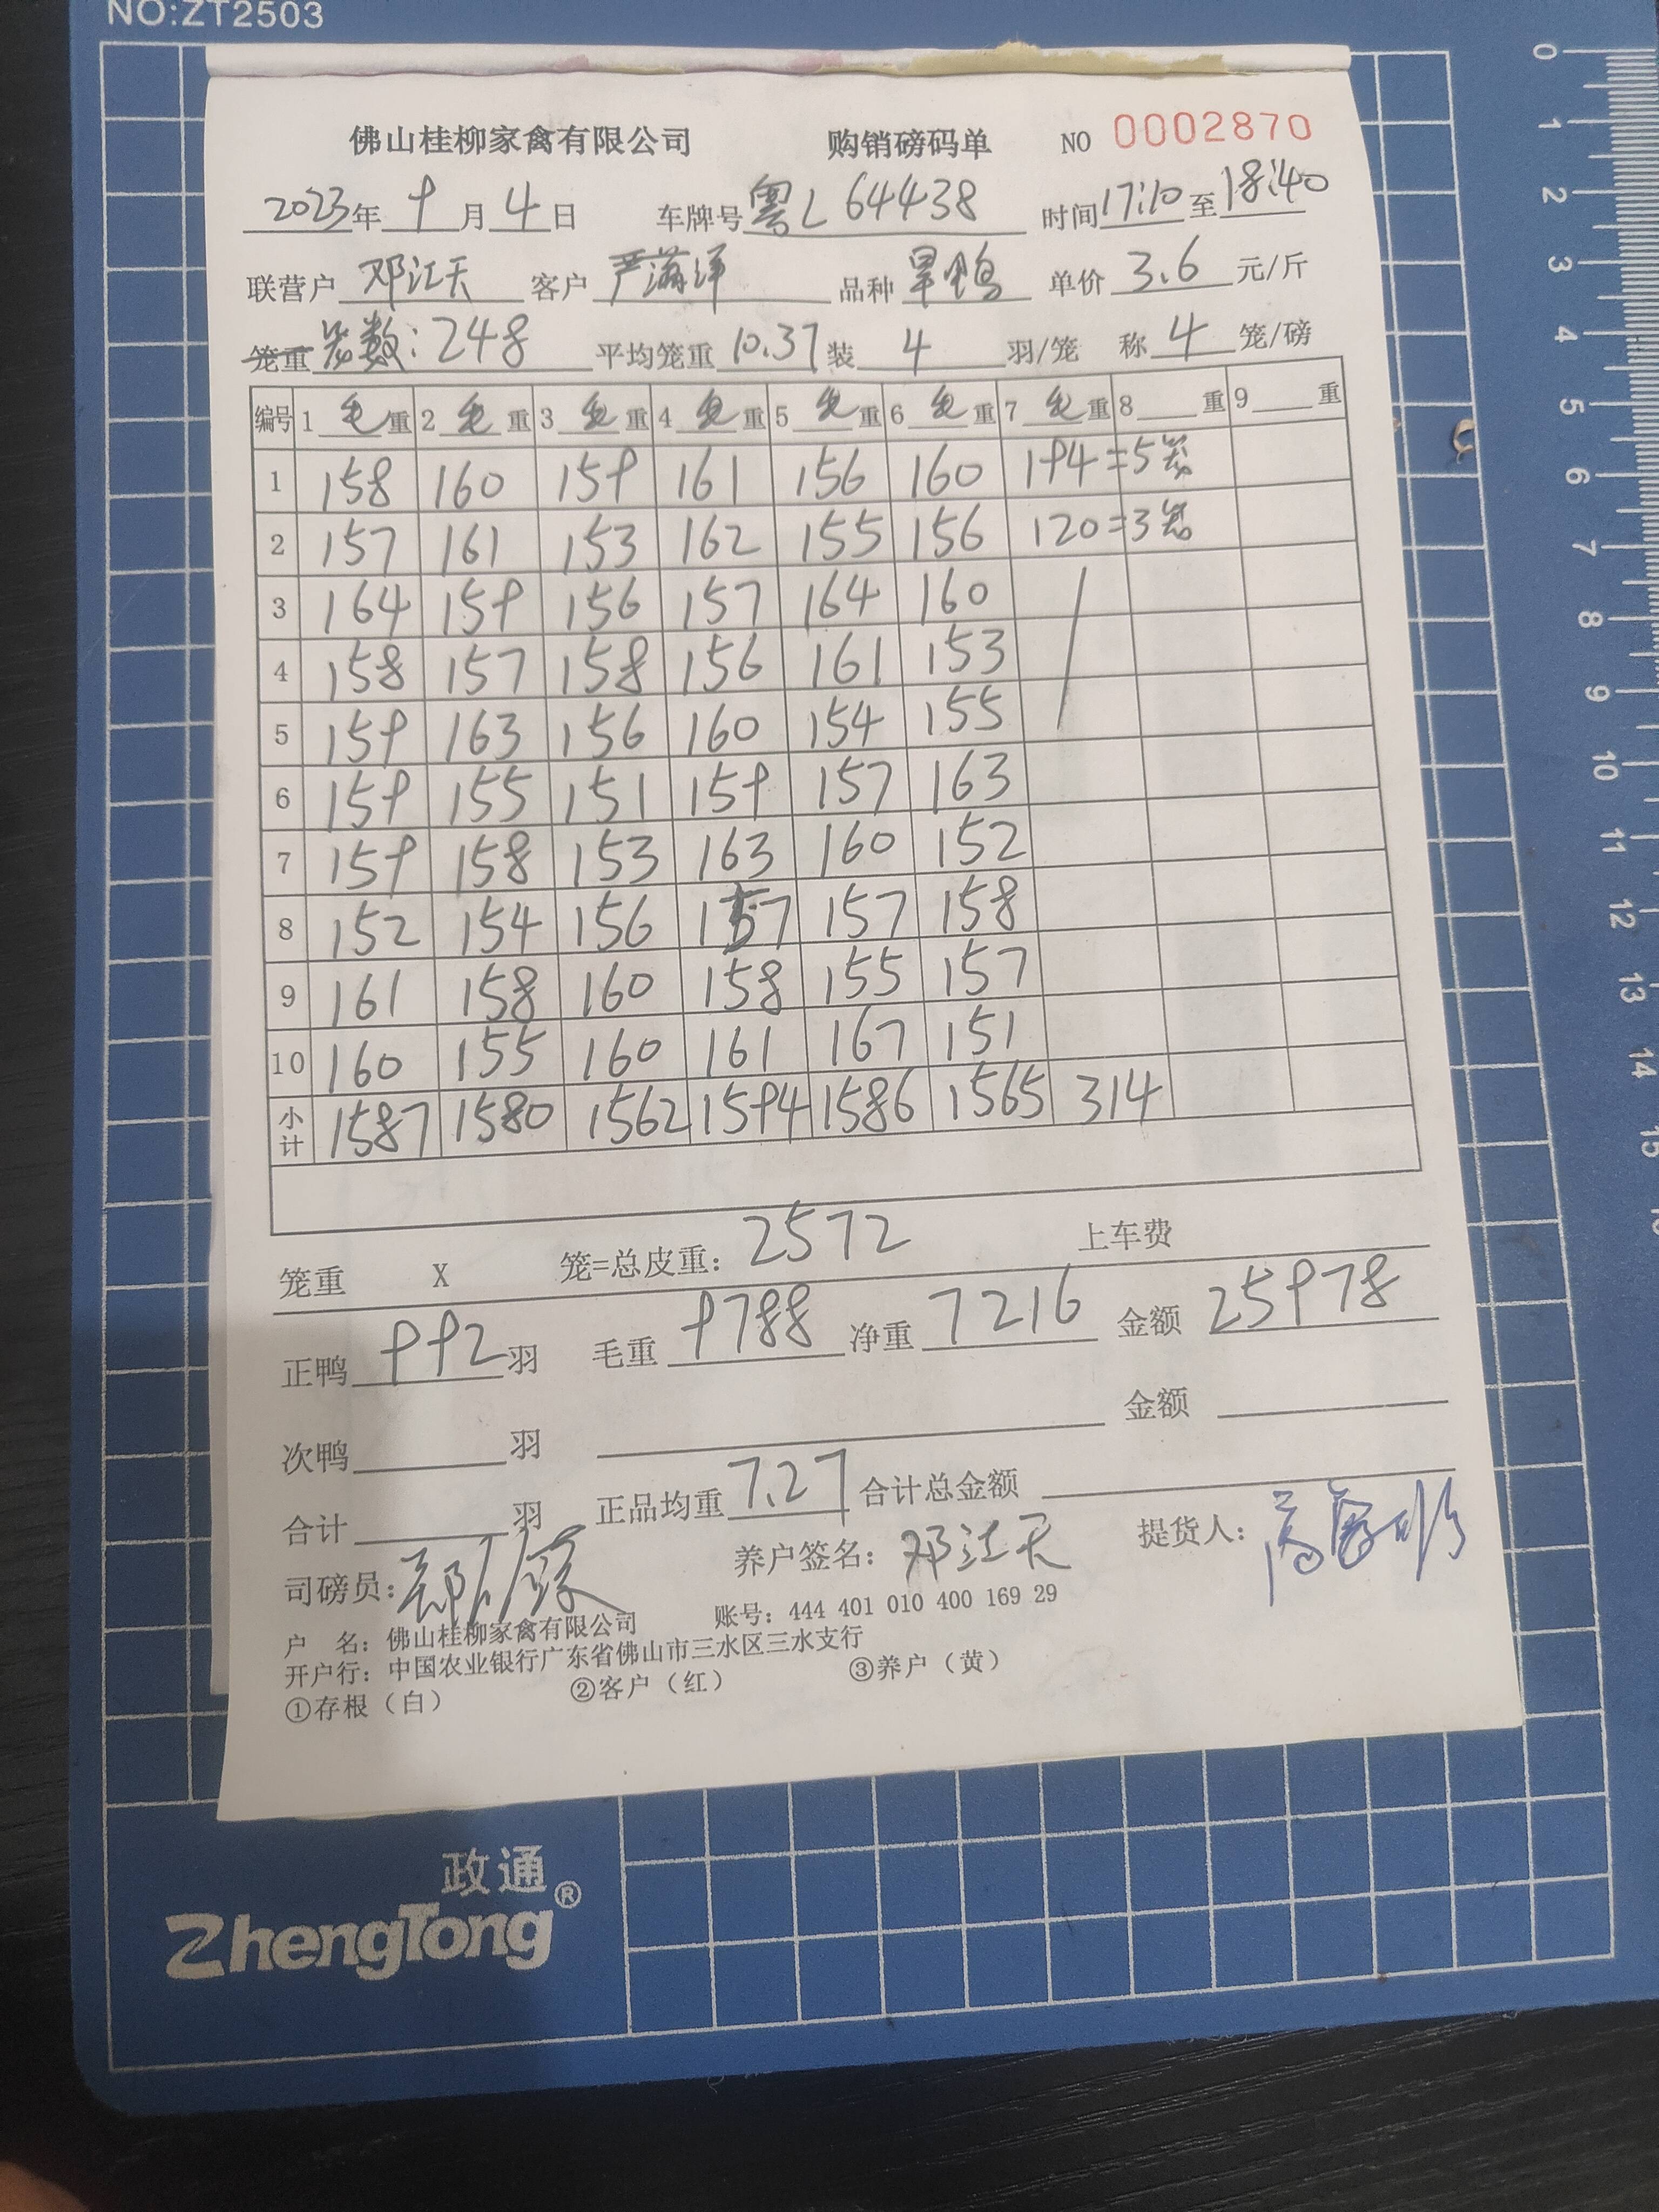 NO:ZT2503
佛山桂柳家禽有限公司 购销磅码单 NO 0002870
2023年 9月4日 车牌号粤L64438 时间17:10至18:40
联营户 邓江天 客户 严满洋 品种 旱鸭 单价 3.6 元/斤
笼重 笼数:248 平均笼重 10.37 装 4 羽/笼 称 4 笼/磅
编号 1 毛 重 2 毛 重 3 毛 重 4 毛 重 5 毛 重 6 毛 重 7 毛 重 8 重 9 重
1 158 160 159 161 156 160 194=5笼
2 157 161 153 162 155 156 120=3笼
3 164 159 156 157 164 160
4 158 157 158 156 161 153
5 159 163 156 160 154 155
6 159 155 151 159 157 163
7 159 158 153 163 160 152
8 152 154 156 157 157 158
9 161 158 160 158 155 157
10 160 155 160 161 167 151
小计 1587 1580 1562 1594 1586 1565 314
笼重 X 笼=总皮重: 2572 上车费
正鸭 992 羽 毛重 9788 净重 7216 金额 25978
次鸭 羽 金额
合计 羽 正品均重 7.27 合计总金额
司磅员: 养户签名: 邓江天 提货人:
户 名: 佛山桂柳家禽有限公司 账号: 444 401 010 400 169 29
开户行: 中国农业银行广东省佛山市三水区三水支行
①存根(白) ②客户(红) ③养户(黄)
政通
ZhengTong®
0
1
2
3
4
5
6
7
8
9
10
11
12
13
14
15